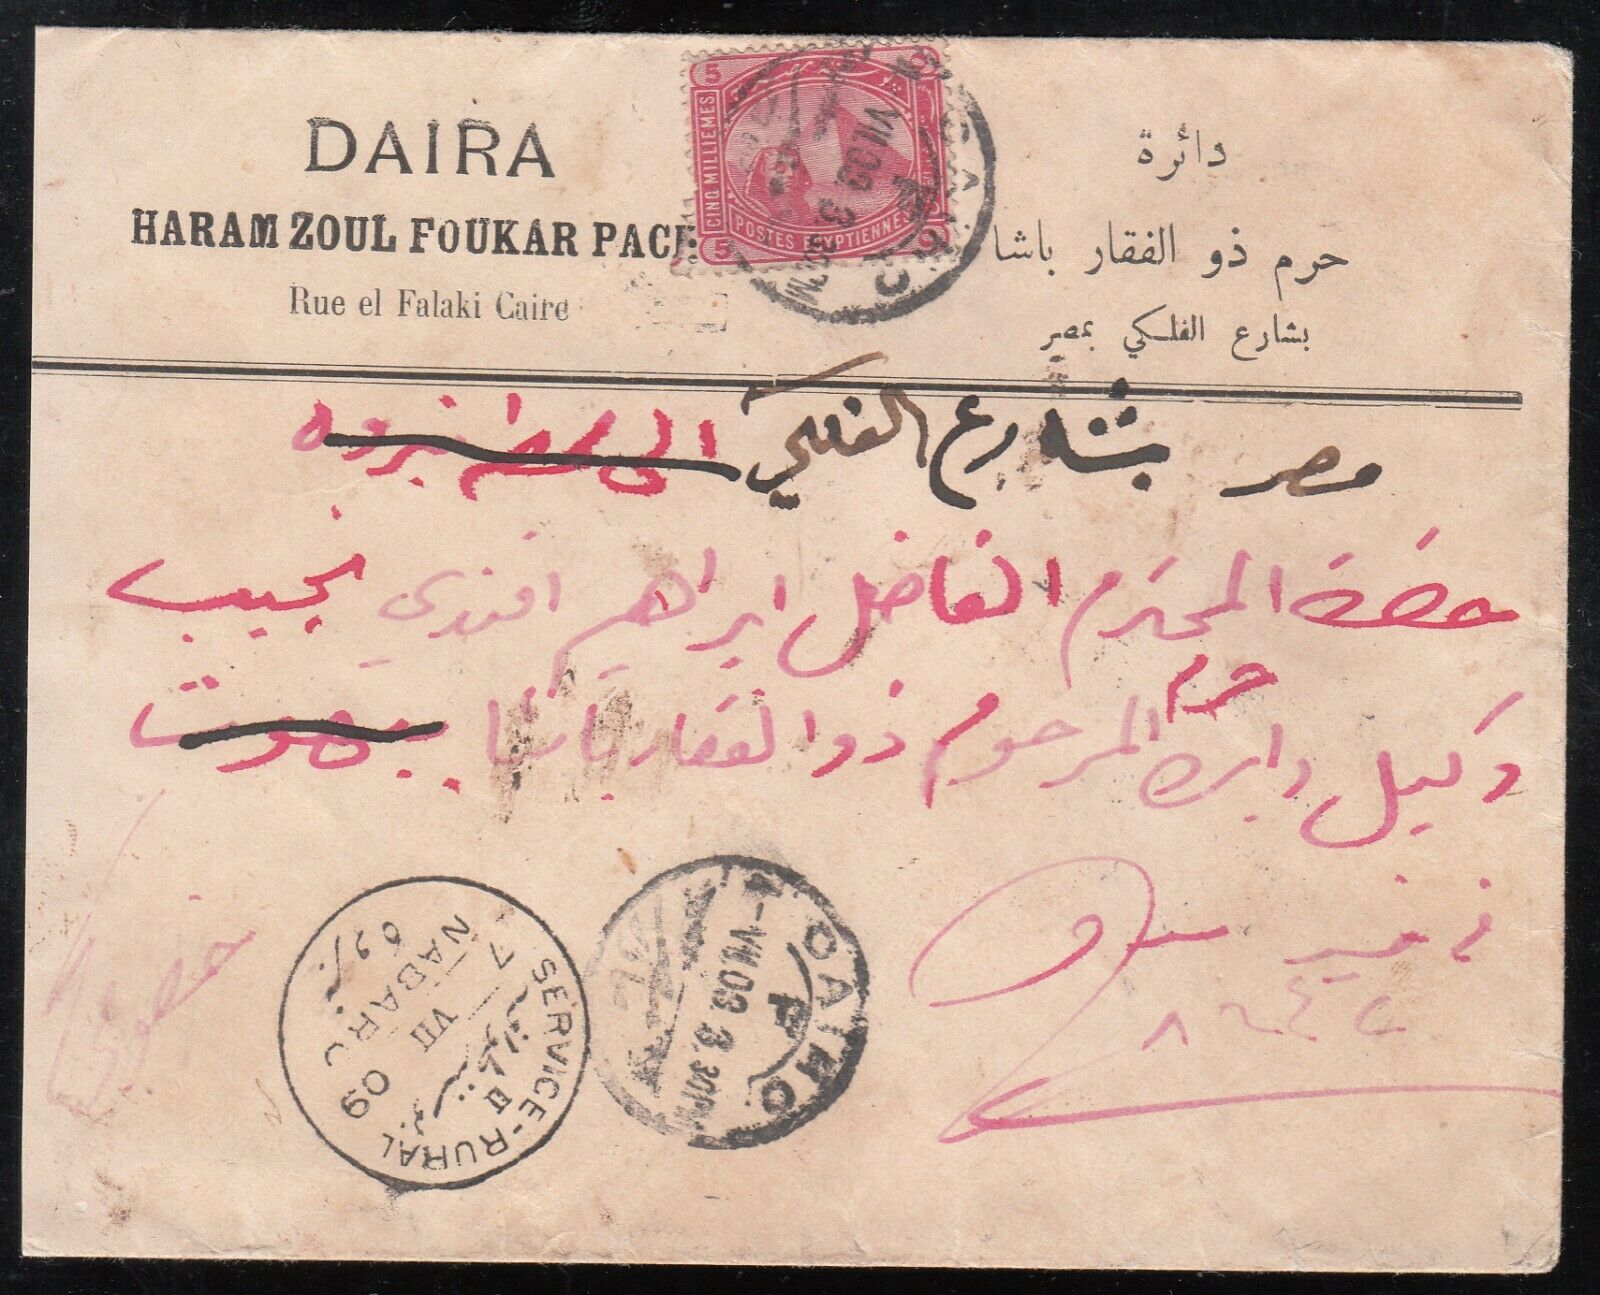 DAIRA
HARAM ZOUL FOUKAR
Rue el Falaki Caire
دائرة
حرم ذو الفقار باشا
بشارع الفلكي بمصر
5 5
CINQ MILLIEMES
POSTES EGYPTIENNES
5
CAIRO
VII.09. 3.30PM
مصر بشارع الفلكي الى
حضرة المحترم الفاضل ابراهيم افندي نجيب
حرم
وكيل دايرة المرحوم ذو الفقار باشا ببهوت
SERVICE-RURAL
7 VII 09
NABARO
نبروه
CAIRO
P
-VII.09. 3.30PM